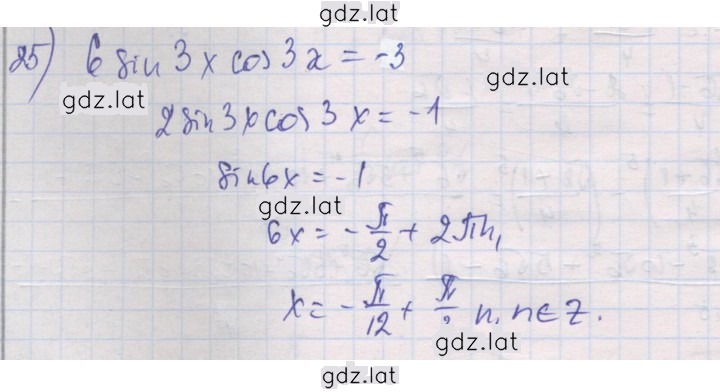 gdz.lat
25) 6 sin 3x cos 3x = -3
gdz.lat
gdz.lat
2 sin 3x cos 3x = -1
sin 6x = -1
gdz.lat
6x = -π/2 + 2πn,
x = -π/12 + π/ n, n ∈ Z.
gdz.lat
gdz.lat